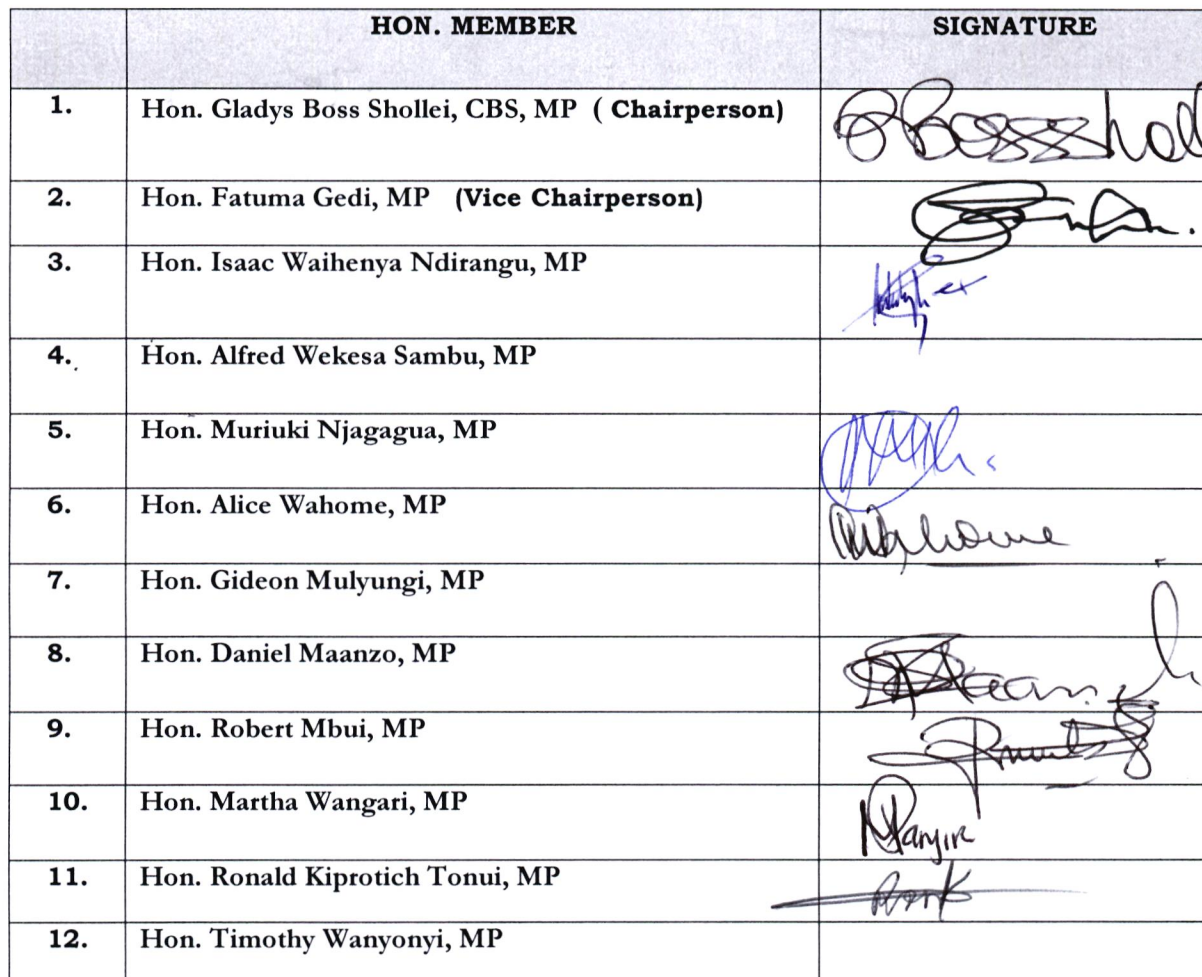 HON. MEMBER SIGNATURE
1. Hon. Gladys Boss Shollei, CBS, MP ( Chairperson)
2. Hon. Fatuma Gedi, MP (Vice Chairperson)
3. Hon. Isaac Waihenya Ndirangu, MP
4. Hon. Alfred Wekesa Sambu, MP
5. Hon. Muriuki Njagagua, MP
6. Hon. Alice Wahome, MP Wahome
7. Hon. Gideon Mulyungi, MP
8. Hon. Daniel Maanzo, MP
9. Hon. Robert Mbui, MP
10. Hon. Martha Wangari, MP
11. Hon. Ronald Kiprotich Tonui, MP
12. Hon. Timothy Wanyonyi, MP